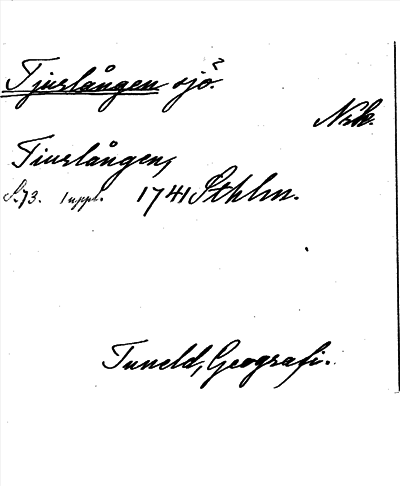 Tjurlången sjö?
Nrk.
Tiurlången,
S. 73. 1 uppl. 1741 Sthlm.
Tuneld, Geografi.